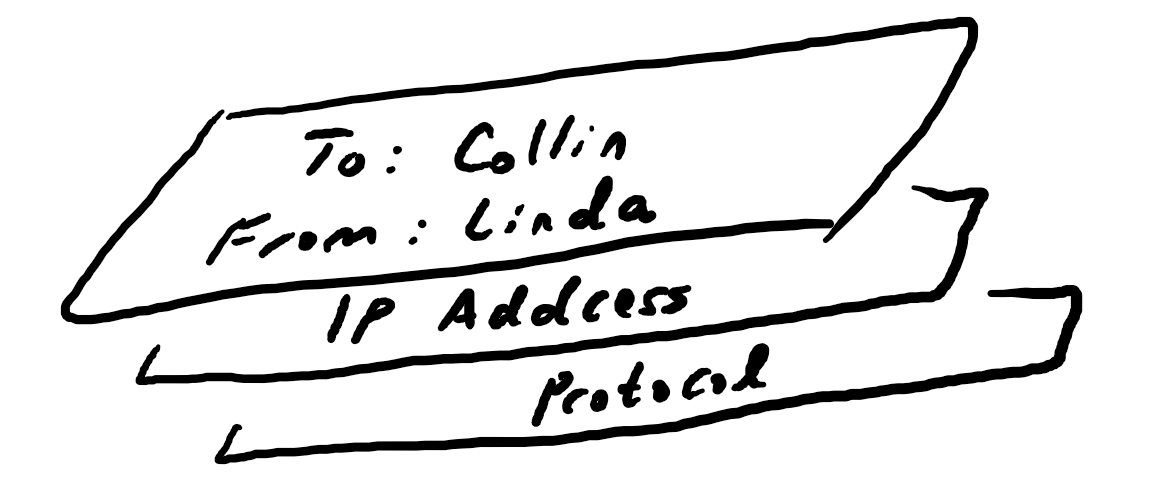 To: Collin
From: Linda
IP Address
Protocol